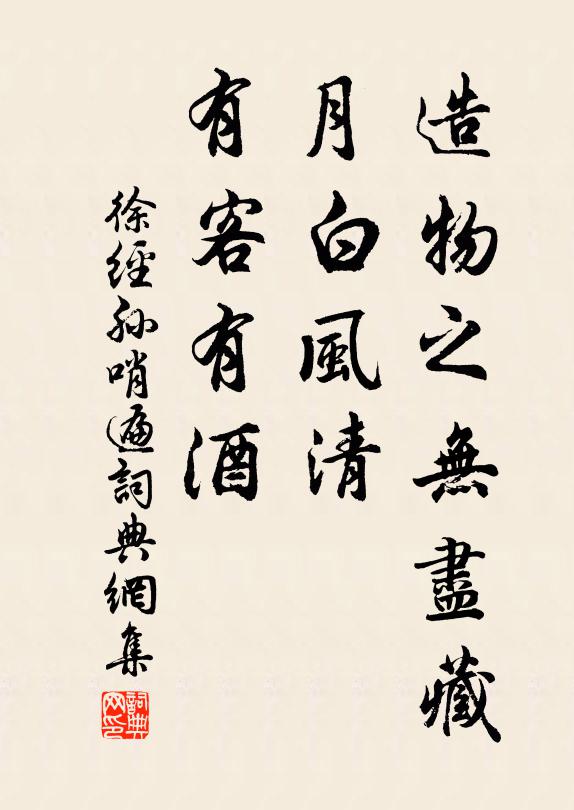 造物之無盡藏
月白風清
有客有酒
徐經孫哨遍詞典網集
詞典网印